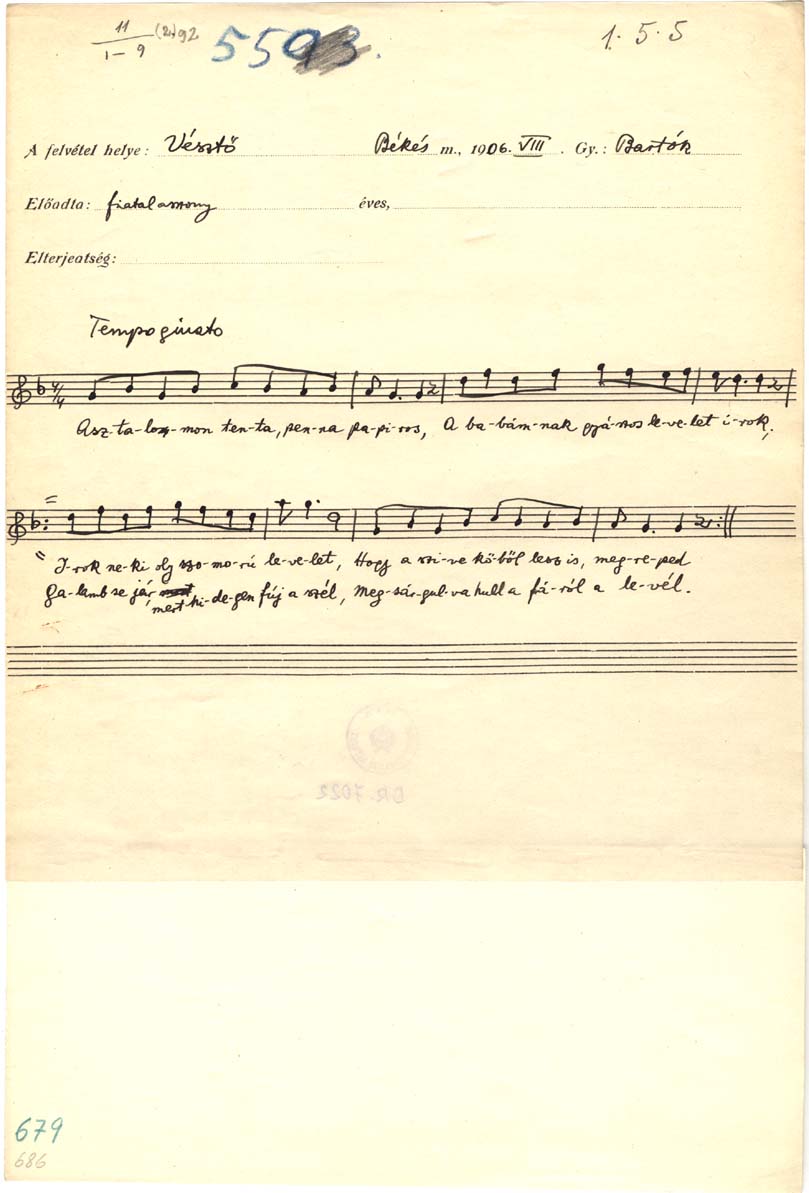 11
1-9 (2)92
559
1.5.5
A felvétel helye: Vésztő Békés m., 1906. VIII. Gy.: Bartók
Előadta: fiatalasszony éves,
Elterjedtség:
Tempo giusto
4/4
Asz-ta-lo-mon ten-ta, pen-na pa-pi-ros, A ba-bám-nak gyá-szos le-ve-let i-rok;
I-rok ne-ki oly szo-mo-rú le-ve-let, Hogy a szi-ve kő-ből lesz is, meg-re-ped
Ga-lamb se jár, mert hi-de-gen fúj a szél, Meg-sár-gul-va hull a fá-ról a le-vél.
BR. 7022
679
686